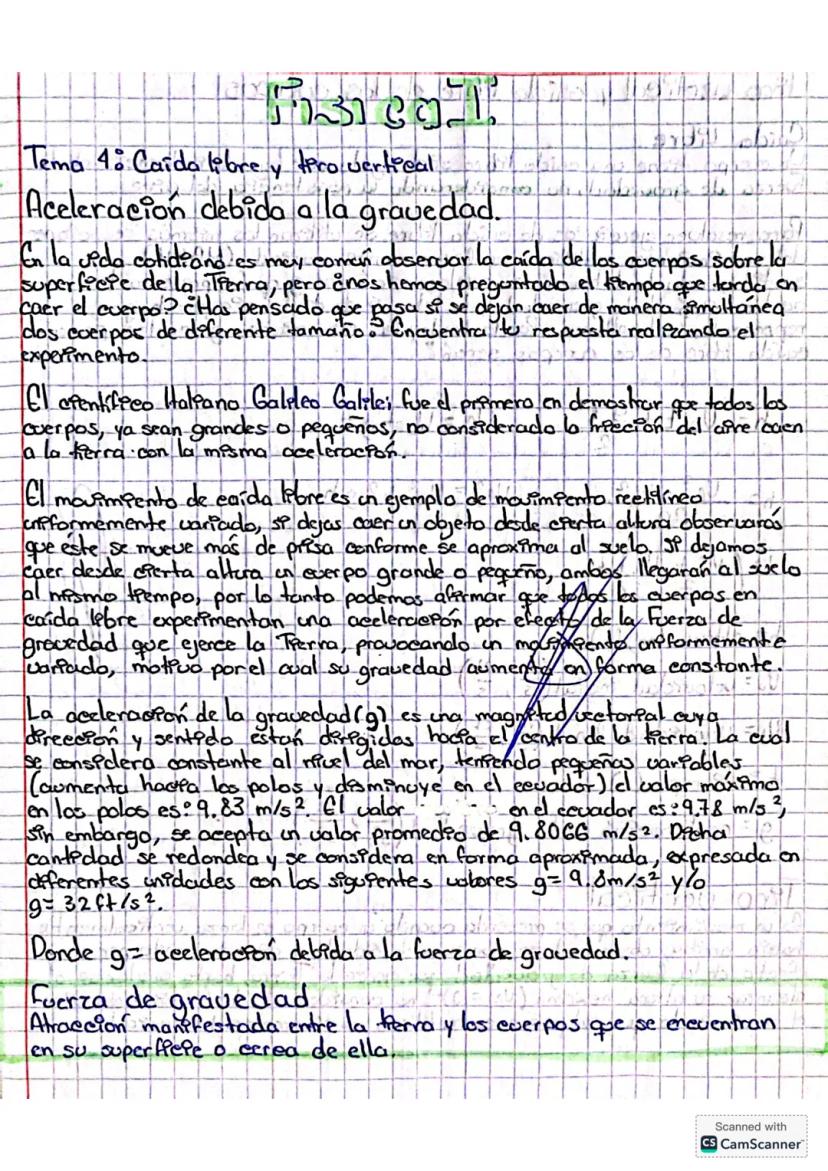 Física I.
Tema 4: Caída libre y tiro vertical
Aceleración debida a la gravedad.
En la vida cotidiana es muy común observar la caída de los cuerpos sobre la
superficie de la Tierra, pero ¿nos hemos preguntado el tiempo que tarda en
caer el cuerpo? ¿Has pensado que pasa si se dejan caer de manera simultánea
dos cuerpos de diferente tamaño? Encuentra tu respuesta realizando el
experimento.
El científico Italiano Galileo Galilei fue el primero en demostrar que todos los
cuerpos, ya sean grandes o pequeños, no considerado la fricción del aire caen
a la tierra con la misma aceleración.
El movimiento de caída libre es un ejemplo de movimiento rectilíneo
uniformemente variado, si dejas caer un objeto desde cierta altura observarás
que éste se mueve más de prisa conforme se aproxima al suelo. Si dejamos
caer desde cierta altura un cuerpo grande o pequeño, ambos llegarán al suelo
al mismo tiempo, por lo tanto podemos afirmar que todos los cuerpos en
caída libre experimentan una aceleración por efecto de la Fuerza de
gravedad que ejerce la Tierra, provocando un movimiento uniformemente
variado, motivo por el cual su gravedad aumenta en forma constante.
La aceleración de la gravedad (g) es una magnitud vectorial cuya
dirección y sentido están dirigidas hacia el centro de la tierra. La cual
se considera constante al nivel del mar, teniendo pequeñas variables
(aumenta hacia los polos y disminuye en el ecuador) el valor máximo
en los polos es: 9.83 m/s². El valor en el ecuador es: 9.78 m/s²,
sin embargo, se acepta un valor promedio de 9.8066 m/s². Dicha
cantidad se redondea y se considera en forma aproximada, expresada en
diferentes unidades con los siguientes valores g= 9.8m/s² y/o
g= 32 ft/s².
Donde g= aceleración debida a la fuerza de gravedad.
Fuerza de gravedad
Atracción manifestada entre la tierra y los cuerpos que se encuentran
en su superficie o cerca de ella.
Scanned with
CS CamScanner